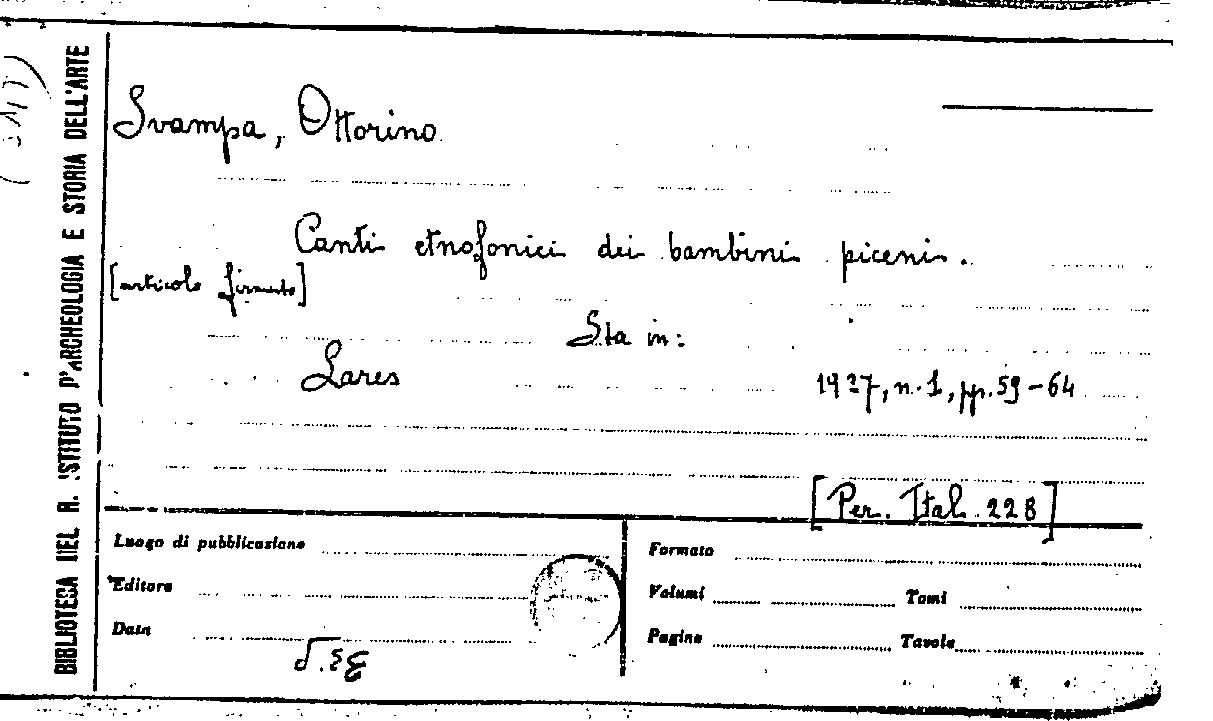 BIBLIOTECA DEL R. ISTITUTO D'ARCHEOLOGIA E STORIA DELL'ARTE
Svampa, Ottorino
Canti etnofonici dei bambini piceni.
[articolo firmato]
Sta in:
Lares 1927, n. 1, pp. 59-64
[Per. Ital. 228]
Luogo di pubblicazione
Editore
Data
Formato
Volumi Tomi
Pagine Tavole